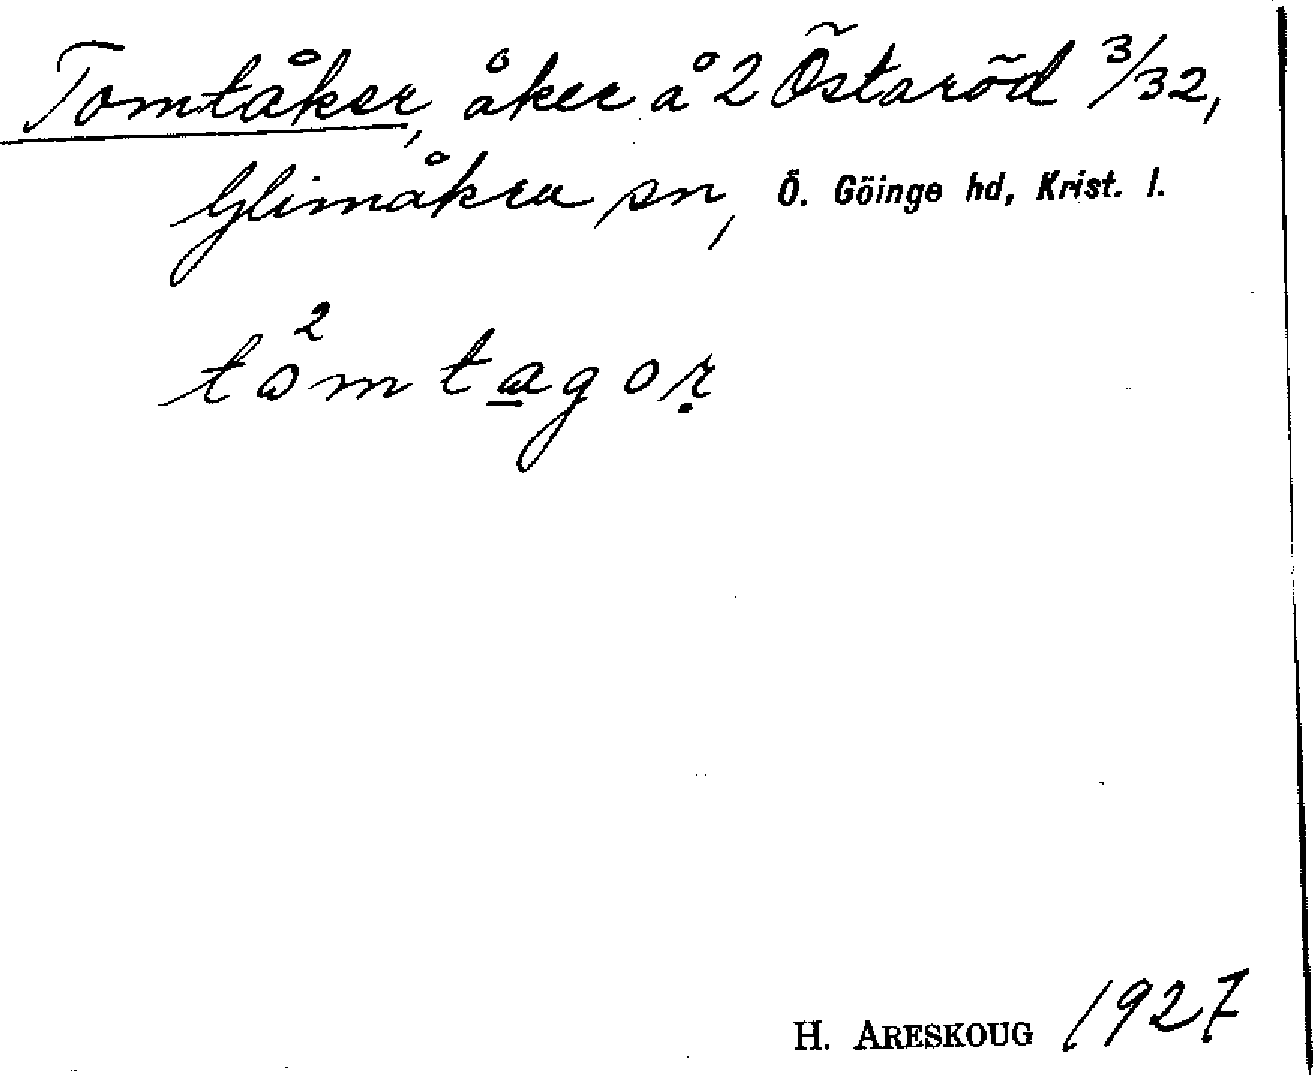 Tomtåker, åker å 2 Östaröd 3/32,
Glimåkra sn, Ö. Göinge hd, Krist. l.
tå²mtagoṛ
H. ARESKOUG 1927